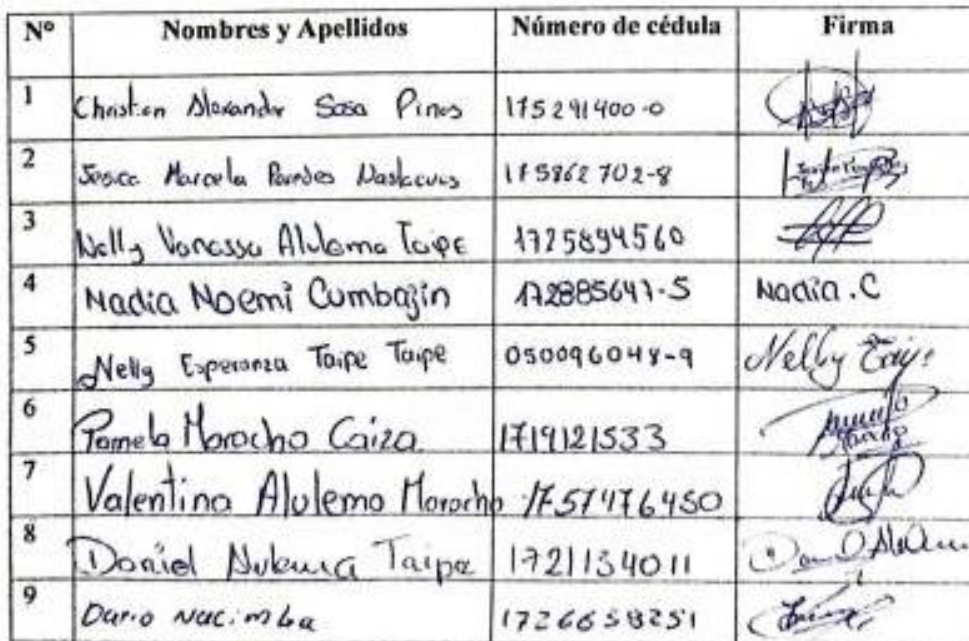 Nº Nombres y Apellidos Número de cédula Firma
1 Christian Alexander Sosa Pinos 175291400-0
2 Jesica Marcela Paredes 175862702-8
3 Nelly Vanessa Alulema Taipe 1725894560
4 Nadia Noemi Cumbajin Nadia.C
5 Nelly Esperanza Taipe Taipe 050096048-9 Nelly Taipe
6 Pamela Morocho Caiza 1719121533
7 Valentina Alulema Morocho 1757476450
8 Daniel Alulema Taipe 1721134011
9 Dario Nacimba